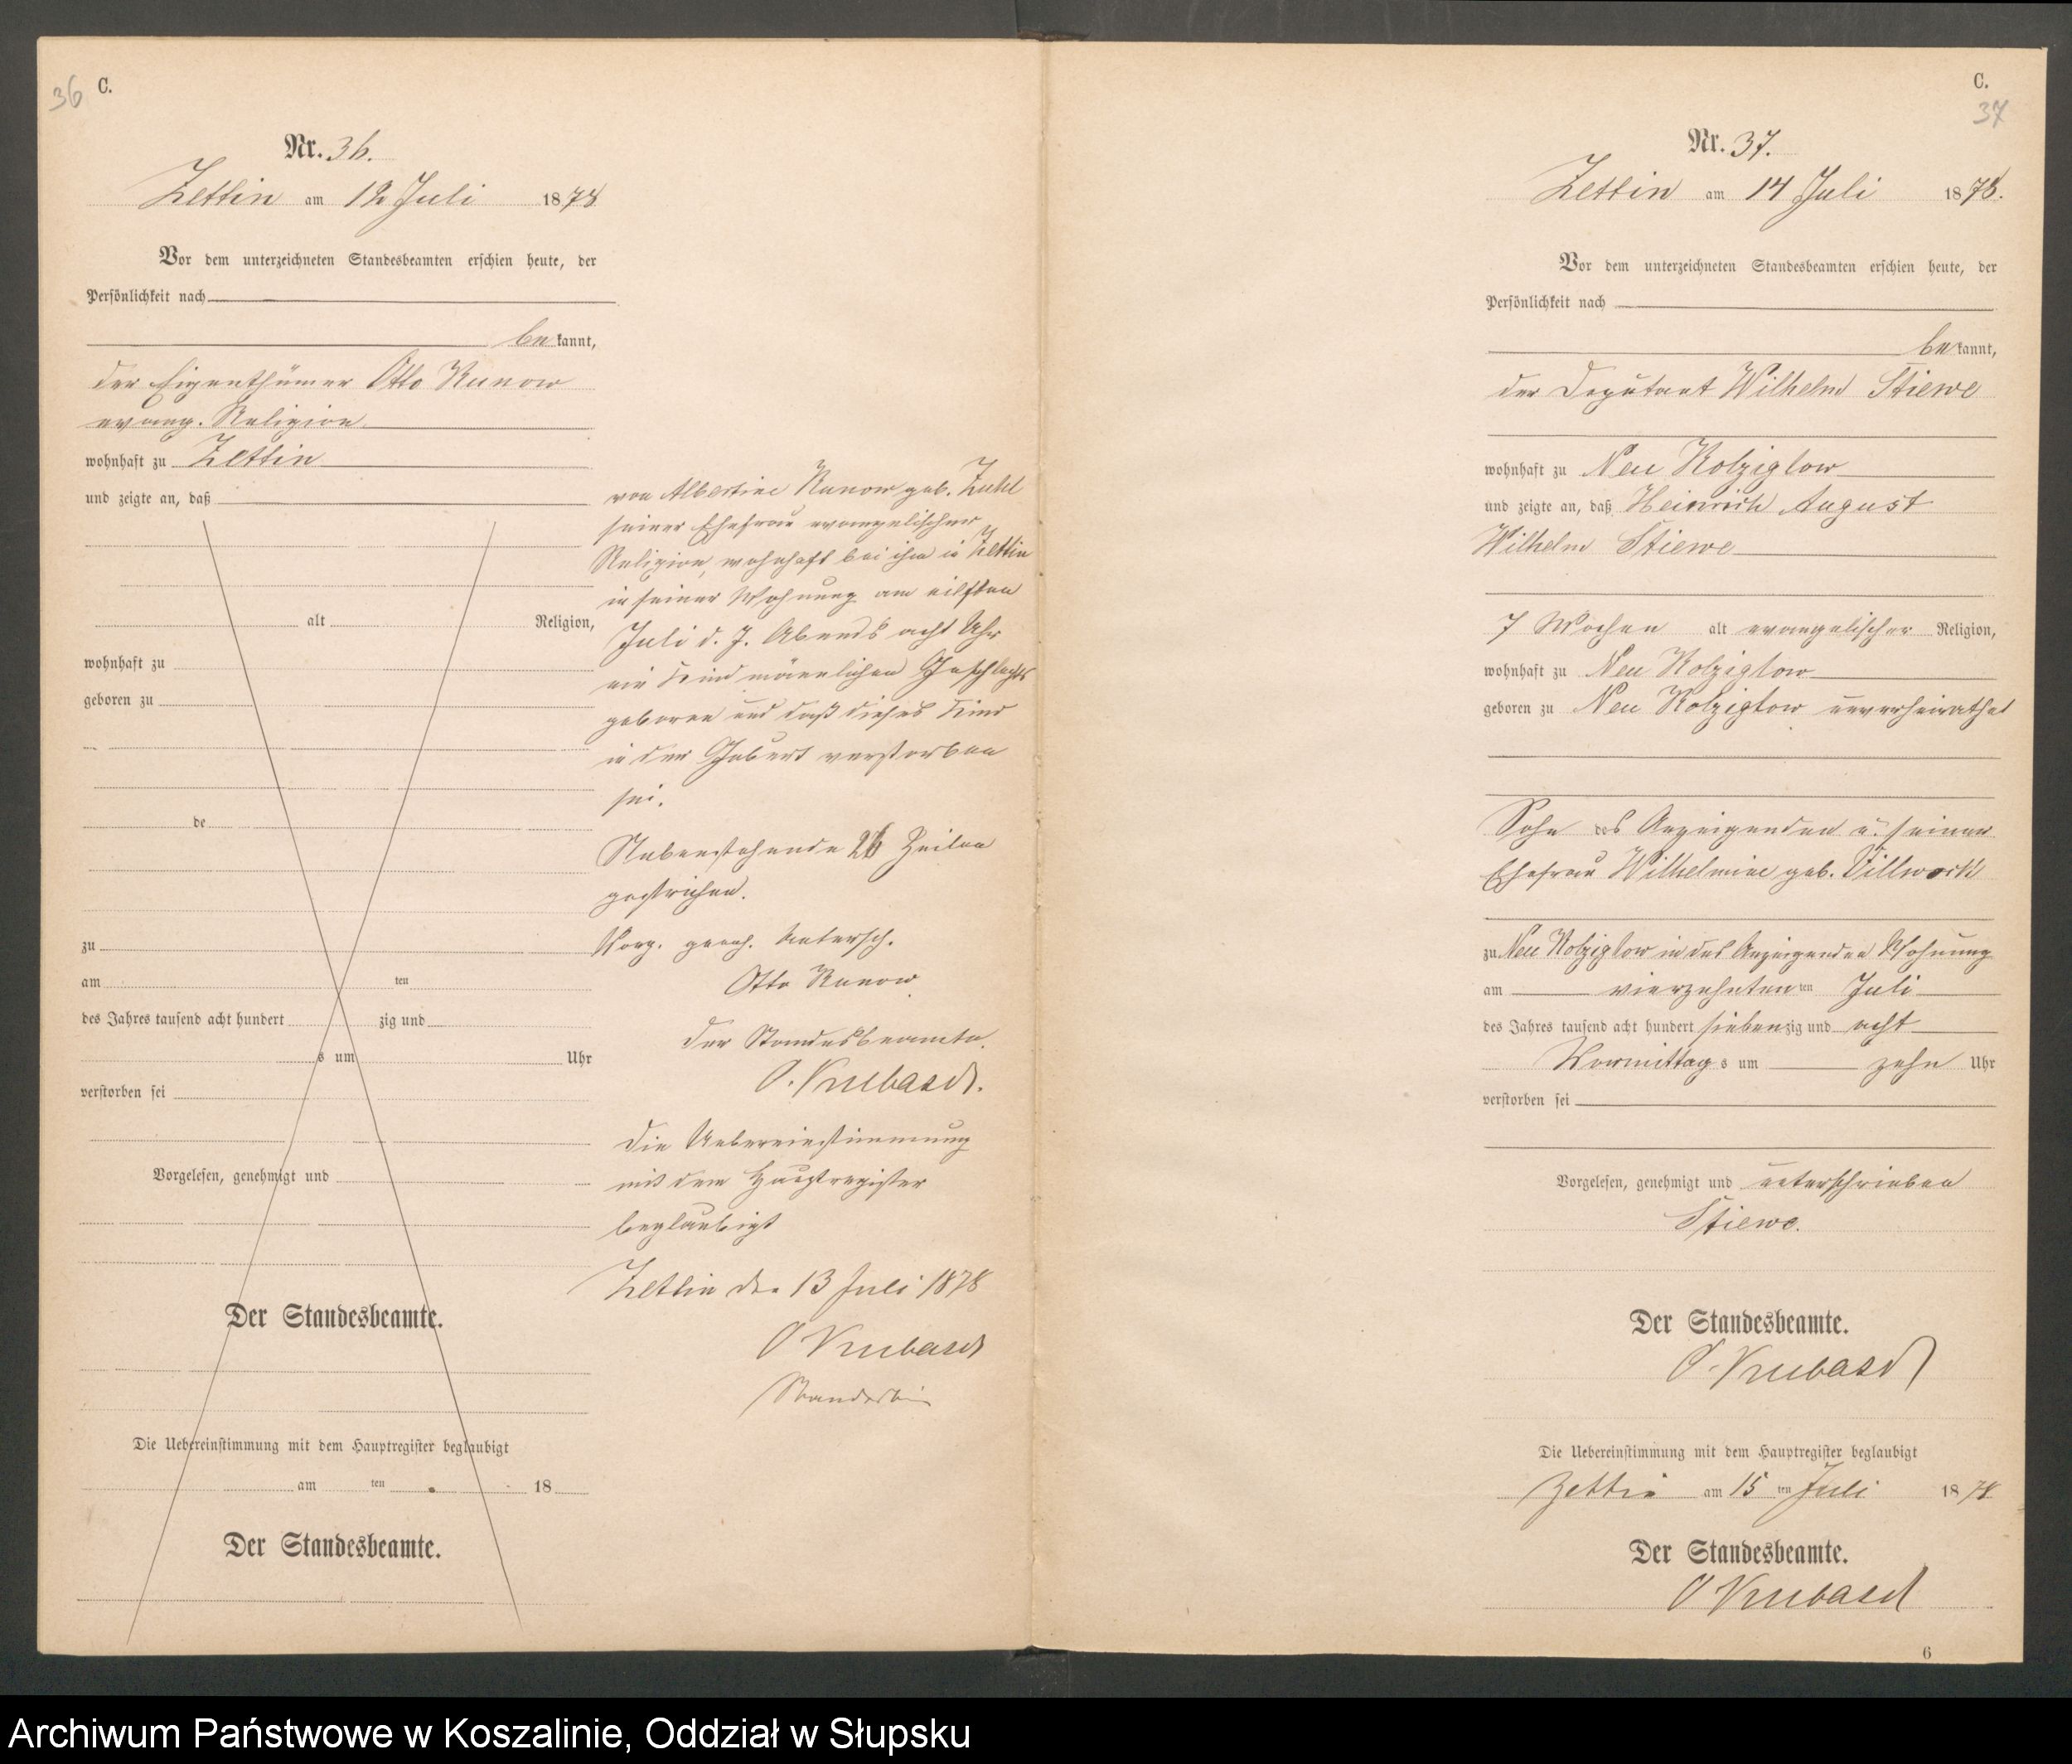 36
C.
Nr. 36.
Zettin am 12 Juli 1878
Vor dem unterzeichneten Standesbeamten erschien heute, der
Persönlichkeit nach
be kannt,
der Eigenthümer Otto Runow
evang. Religion
wohnhaft zu Zettin
und zeigte an, daß
alt Religion,
wohnhaft zu
geboren zu
de
zu
am ten
des Jahres tausend acht hundert zig und
s um Uhr
verstorben sei
Vorgelesen, genehmigt und
Der Standesbeamte.
Die Uebereinstimmung mit dem Hauptregister beglaubigt
am ten 18
Der Standesbeamte.
von Albertine Runow geb.
seiner Ehefrau evangelischer
Religion, wohnhaft bei ihm in Zettin
in seiner Wohnung am eilften
Juli d. J. Abends acht Uhr
ein Kind männlichen Geschlechts
geboren und daß dieses Kind
in der Geburt verstorben
sei.
Nebenstehende 26 Zeilen
gestrichen.
Vorg. geneh. Untersch.
Otto Runow
Der Standesbeamte.
Die Uebereinstimmung
mit dem Hauptregister
beglaubigt
Zettin den 13 Juli 1878
C.
37
Nr. 37.
Zettin am 14 Juli 1878.
Vor dem unterzeichneten Standesbeamten erschien heute, der
Persönlichkeit nach
be kannt,
der Deputant Wilhelm Stiewe
wohnhaft zu Neu Kolziglow
und zeigte an, daß Heinrich August
Wilhelm Stiewe
7 Wochen alt evangelischer Religion,
wohnhaft zu Neu Kolziglow
geboren zu Neu Kolziglow unverheirathet
Sohn des Anzeigenden u. seiner
Ehefrau Wilhelmine geb. Villwock
zu Neu Kolziglow in des Anzeigenden Wohnung
am vierzehnten ten Juli
des Jahres tausend acht hundert siebenzig und acht
Vormittag s um zehn Uhr
verstorben sei
Vorgelesen, genehmigt und unterschrieben
Stiewe.
Der Standesbeamte.
Die Uebereinstimmung mit dem Hauptregister beglaubigt
Zettin am 15 ten Juli 1878
Der Standesbeamte.
6
Archiwum Państwowe w Koszalinie, Oddział w Słupsku